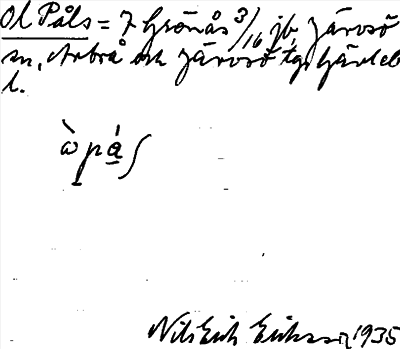 Ol Påls = 7 Grönås 3/16 jb, Järvsö
sn, Arbrå och Järvsö tgs, Gävleb
l.
ὼpás
Nils Erik Eriksson 1935